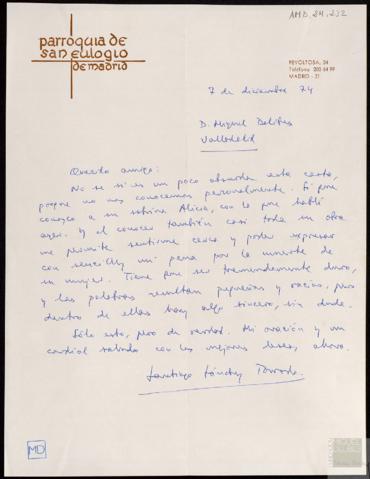 AMD, 24, 232
parroquia de
san eulogio
de madrid
REVOLTOSA, 34
Teléfono 200 64 99
MADRID - 21
7 de diciembre 74
D. Miguel Delibes
Valladolid
Querido amigo:
No se si es un poco absurda esta carta,
porque no nos conocemos personalmente. Sí que
conozco a su sobrina Alicia, con la que hablé
ayer. Y el conocer también casi toda su obra
me permite sentirme cerca y poder expresar
con sencillez mi pena por la muerte de
su mujer. Tiene que ser tremendamente duro,
y las palabras resultan pequeñas y vacías, pero
dentro de ellas hay algo sincero, sin duda.
Sólo esto, pero de verdad. Mi oración y un
cordial saludo con los mejores deseos, ahora.
Santiago Sánchez
MD